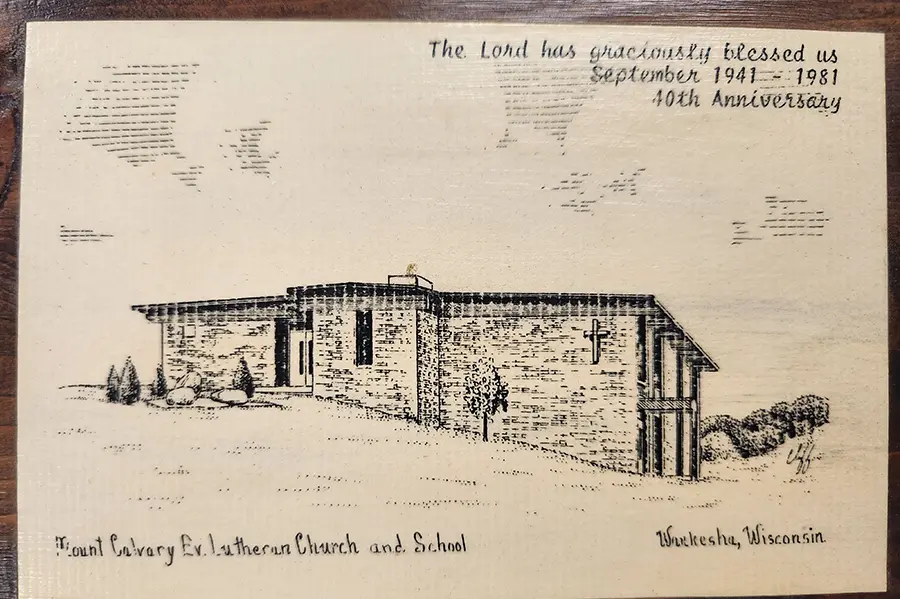 The Lord has graciously blessed us
September 1941 - 1981
40th Anniversary
Cliff
Mount Calvary Ev. Lutheran Church and School
Waukesha, Wisconsin